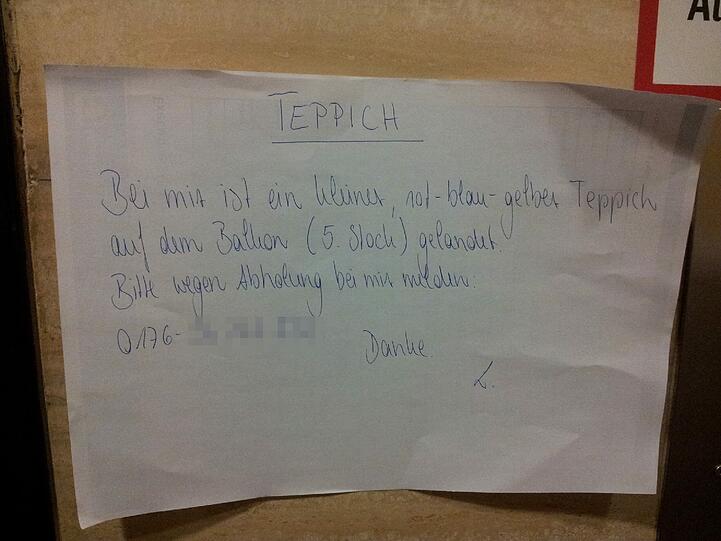 TEPPICH
Bei mir ist ein kleiner, rot-blau-gelber Teppich
auf dem Balkon (5. Stock) gelandet.
Bitte wegen Abholung bei mir melden:
0176-
Danke.
L.